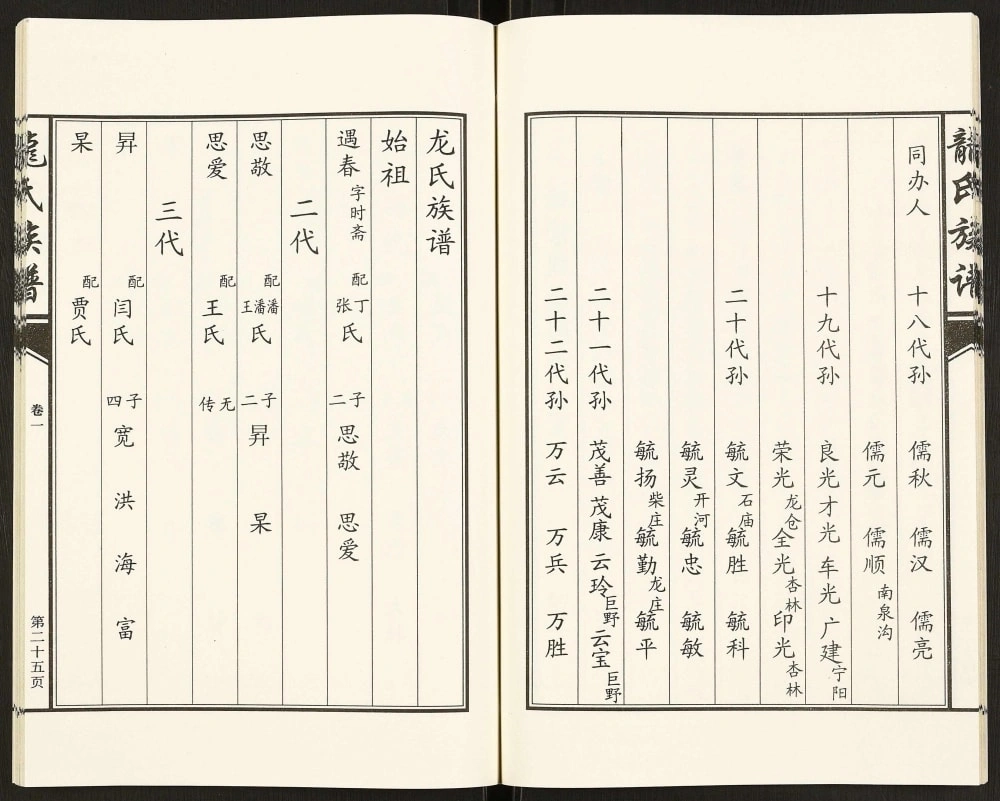 龍氏族谱
同办人 十八代孙 儒秋 儒汉 儒亮
儒元 儒顺 南泉沟
十九代孙 良光 才光 车光 广建 宁阳
荣光 龙仓 全光 杏林 印光 杏林
二十代孙 毓文 石庙 毓胜 毓科
毓灵 开河 毓忠 毓敏
毓扬 柴庄 毓勤 龙庄 毓平
二十一代孙 茂善 茂康 云玲 巨野 云宝 巨野
二十二代孙 万云 万兵 万胜
龙氏族谱
始祖
遇春 字时斋 配 丁 张 氏 子二 思敬 思爱
二代
思敬 配 潘 潘 王 氏 子二 昇 杲
思爱 配 王氏 无传
三代
昇 配 闫氏 子四 宽 洪 海 富
杲 配 贾氏
龍氏族谱
卷一
第二十五页